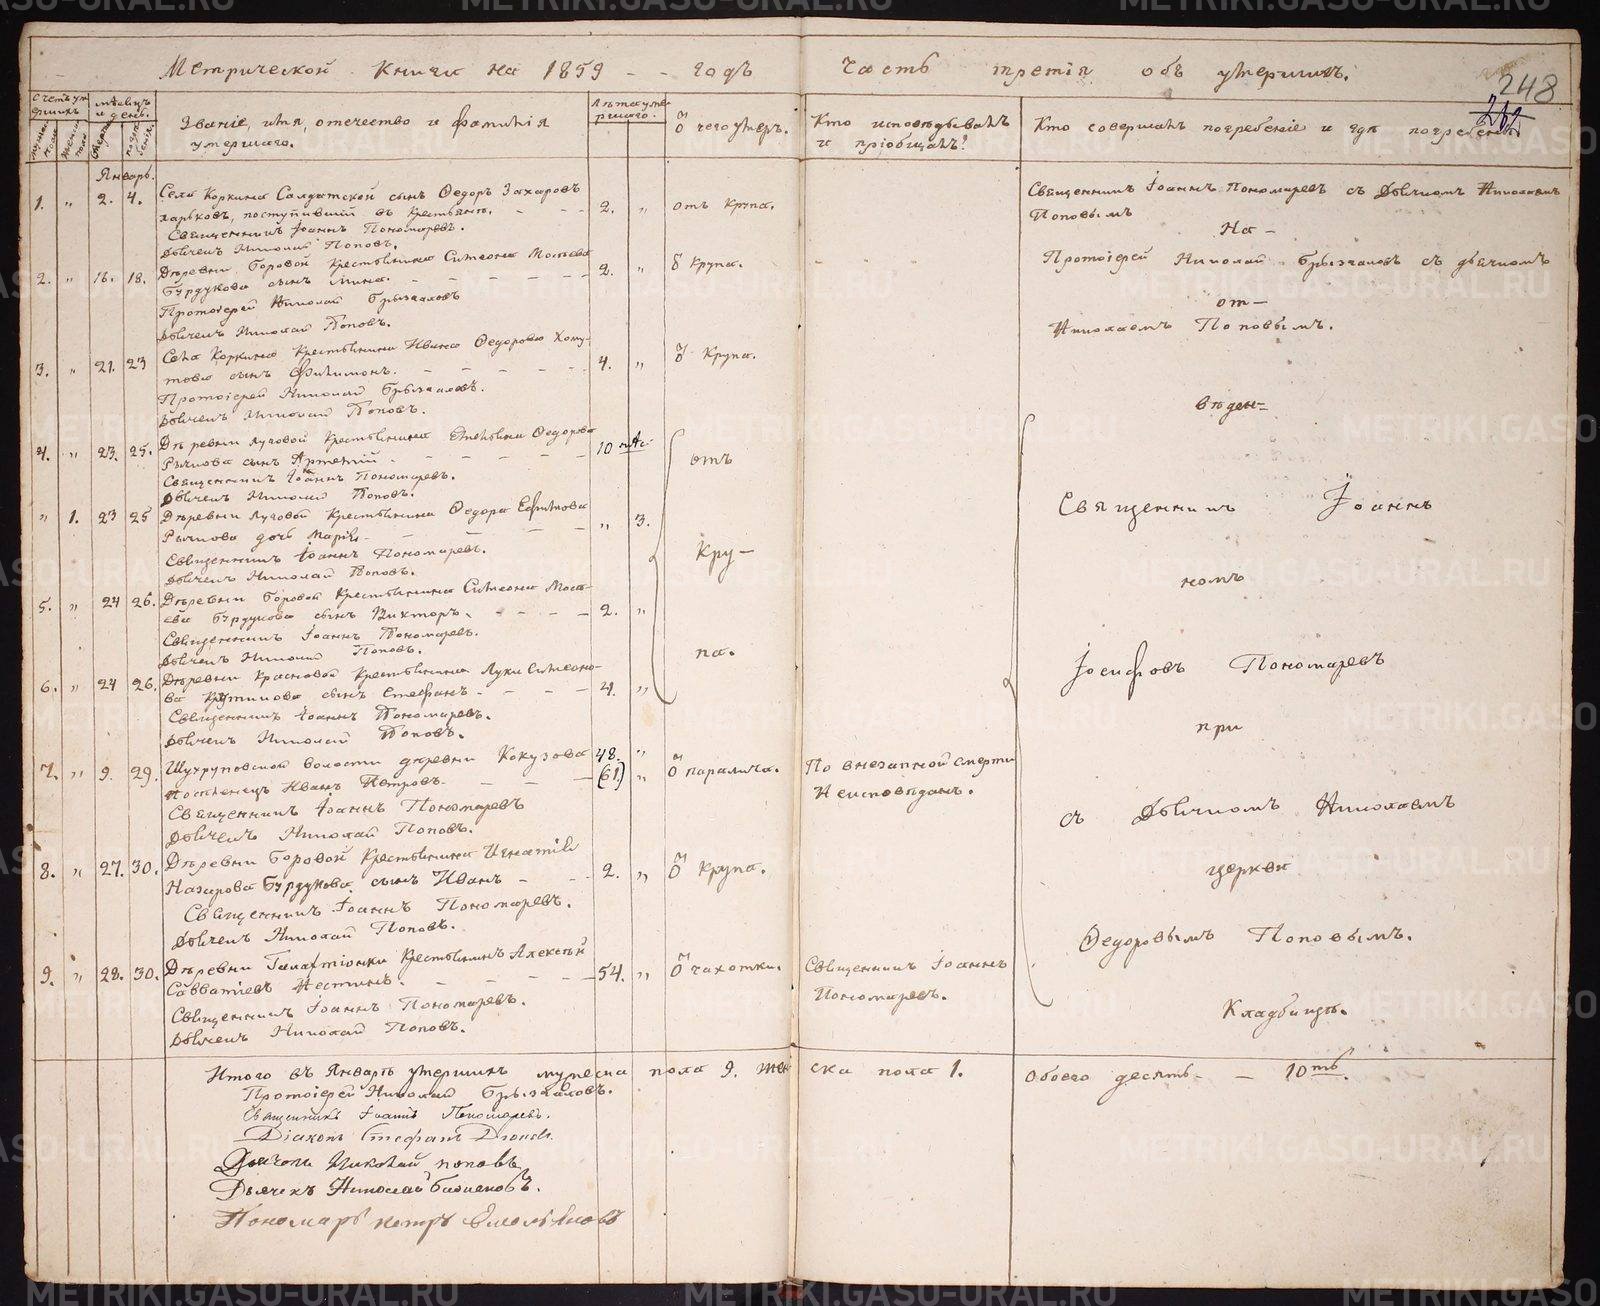 Метрической книги на 1859 - - годъ часть третія объ умершихъ.
248
Счетъ умершихъ
мѣсяцъ и день.
Званіе, имя, отечество и фамилія умершаго.
Лѣта умершаго.
Ѿ чего умеръ.
Кто исповѣдывалъ и пріобщалъ?
Кто совершалъ погребеніе и гдѣ погребены
Январь.
1. „ 2. 4. Села Коркина Салдатской сынъ Ѳедоръ Захаровъ
Харьковъ, поступившій въ крестьяне. - - - 2. „ отъ крупа.
Священникъ Іоаннъ Пономаревъ.
Дьячекъ Николай Поповъ.
2. „ 16. 18. Деревни Боровой крестьянина Симеона Мосѣева
Бурдукова сынъ Мина. - - - 2. „ Ѿ крупа.
Протоіерей Николай Брызгаловъ
Дьячекъ Николай Поповъ.
3. „ 21. 23 Села Коркина крестьянина Ивана Ѳедорова Хому-
това сынъ Филимонъ. - - - 4. „ Ѿ крупа.
Протоіерей Николай Брызгаловъ.
Дьячекъ Николай Поповъ.
4. „ 23. 25. Деревни Луговой крестьянина Ѳедорова
Рычкова сынъ Артемій. - - - 10 мѣс.
Священникъ Іоаннъ Пономаревъ.
Дьячекъ Николай Поповъ.
„ 1. 23 25 Деревни Луговой крестьянина Ѳедора Ефимова
Рычкова дочь Марія. - - - „ 3.
Священникъ Іоаннъ Пономаревъ.
Дьячекъ Николай Поповъ.
5. „ 24 26. Деревни Боровой крестьянина Симеона Мосѣ-
ева Бурдукова сынъ Викторъ. - - - 2. „
Священникъ Іоаннъ Пономаревъ.
Дьячекъ Николай Поповъ.
6. „ 24 26. Деревни Красновой крестьянина Луки Симеоно-
ва сынъ Стефанъ. - - - 4. „
Священникъ Іоаннъ Пономаревъ.
Дьячекъ Николай Поповъ.
отъ
кру-
па.
7. „ 9. 29. волости деревни Кокузова 48. „
Иванъ Петровъ. - - - (61.) „ Ѿ паралича.
Священникъ Іоаннъ Пономаревъ
Дьячекъ Николай Поповъ.
По внезапной смерти
Неисповѣданъ.
8. „ 27. 30. Деревни Боровой крестьянина Игнатія
Назарова Бурдукова сынъ Иванъ - - 2. „ Ѿ крупа.
Священникъ Іоаннъ Пономаревъ.
Дьячекъ Николай Поповъ.
9. „ 28. 30. Деревни Галактіонки крестьянинъ Алексѣй
Савватіевъ - - - 54. „ Ѿ чахотки.
Священникъ Іоаннъ Пономаревъ.
Дьячекъ Николай Поповъ.
Священникъ Іоаннъ
Пономаревъ.
Священникъ Іоаннъ Пономаревъ съ Дьячкомъ Николаемъ
Поповымъ
На -
Протоіерей Николай Брызгаловъ съ дьячкомъ
от -
Николаемъ Поповымъ.
веден-
Священникъ Іоаннъ
номъ
Іосифовъ Пономаревъ
при
съ Дьячкомъ Николаемъ
церкви
Ѳедоровымъ Поповымъ.
Кладбищѣ.
Итого въ Январѣ умершихъ мужеска пола 9. женска пола 1. Обоего десять - - 10ть
Протоіерей Николай Брызгаловъ.
Священникъ Іоаннъ Пономаревъ.
Діаконъ Стефанъ
Дьячекъ Николай поповъ
Дьячекъ Николай
Пономарь петръ Емельяновъ
METRIKI.GASO-URAL.RU